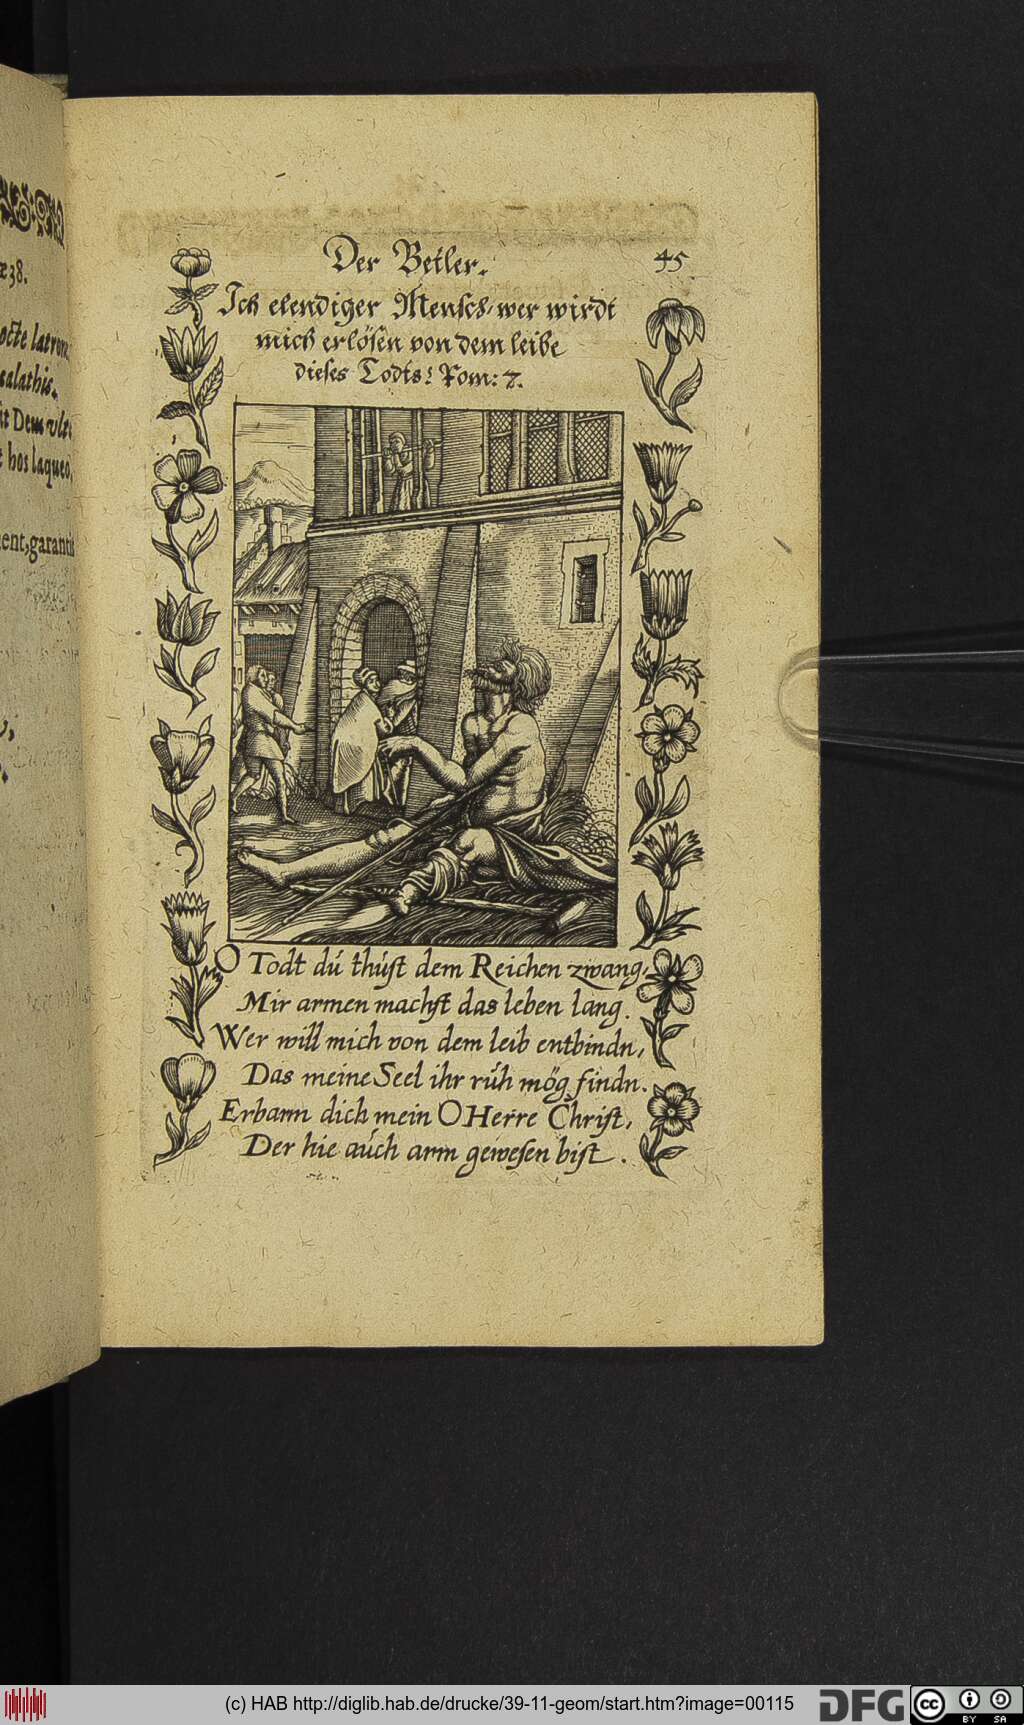 æ 38.
salathis.
it Dem vlt
t hos laqueo,
ent, garanti
Der Betler.
45
Ich elendiger Mensch, wer wirdt
mich erlösen von dem leibe
dieses Todts? Rom: 7.
O Todt dú thúst dem Reichen zwang,
Mir armen machst das leben lang.
Wer will mich von dem leib entbindn,
Das meine Seel ihr rúh mög findn.
Erbarm dich mein O Herre Christ,
Der hie aúch arm gewesen bist.
(c) HAB http://diglib.hab.de/drucke/39-11-geom/start.htm?image=00115
DFG
cc
BY SA